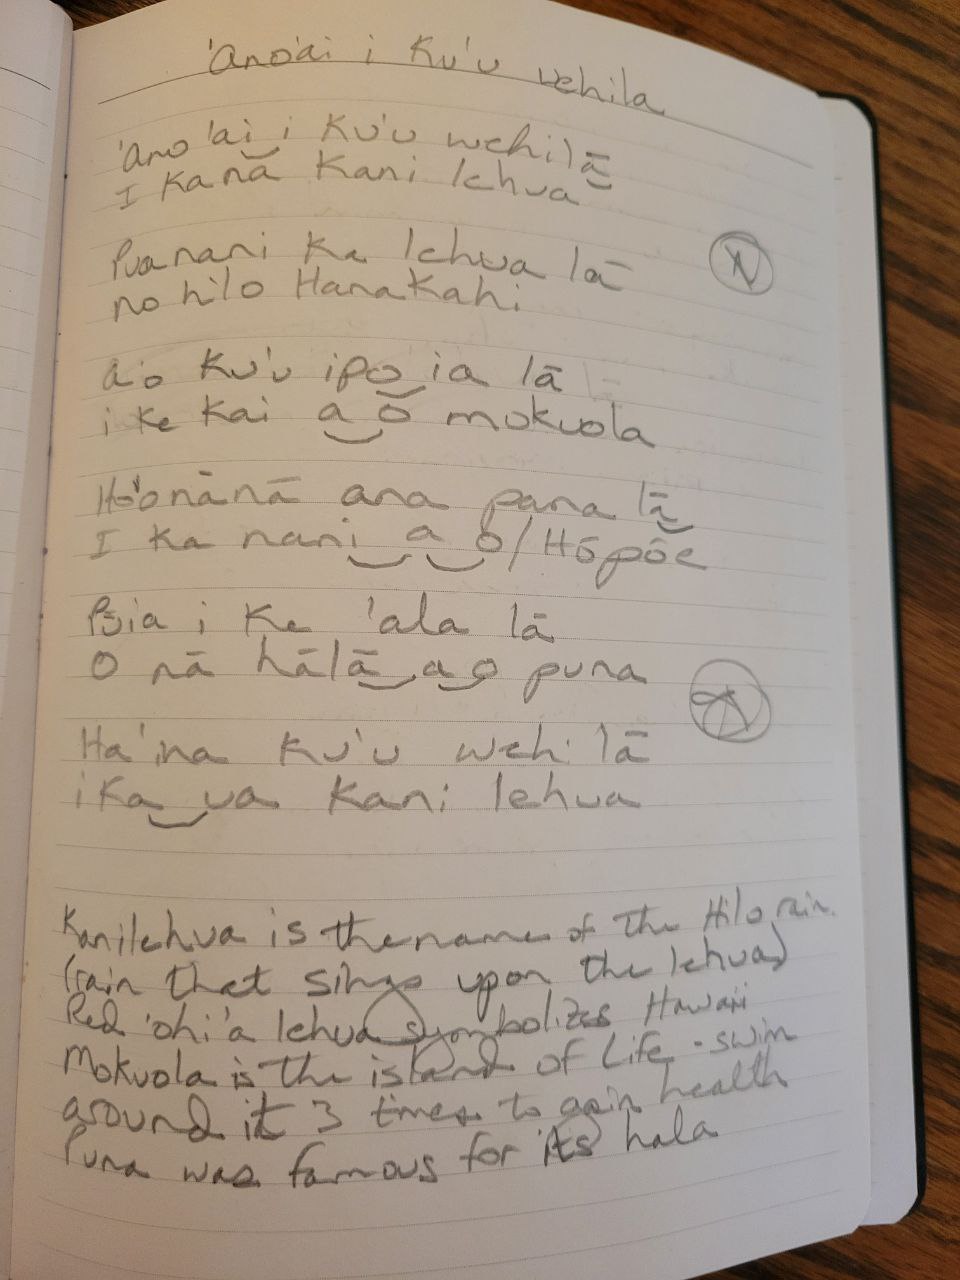 'Ano'ai i Ku'u wehila
'Ano 'ai i Ku'u wehi lā
I Ka nā Kani lehua
Pua nani Ka lehua lā
no hilo Hanakahi
a'o Ku'u ipo ia lā
i ke Kai a o mokuola
Ho'onānā ana pana lā
I Ka nani a o / Hōpōe
Pōia i Ke 'ala lā
O nā hālā a o puna
Ha'ina Ku'u wehi lā
i Ka ua Kani lehua
Kanilehua is the name of the Hilo rain.
(rain that sings upon the lehua)
Red 'ohi'a lehua symbolizes Hawaii
Mokuola is the island of Life - swim
around it 3 times to gain health
Puna was famous for its hala